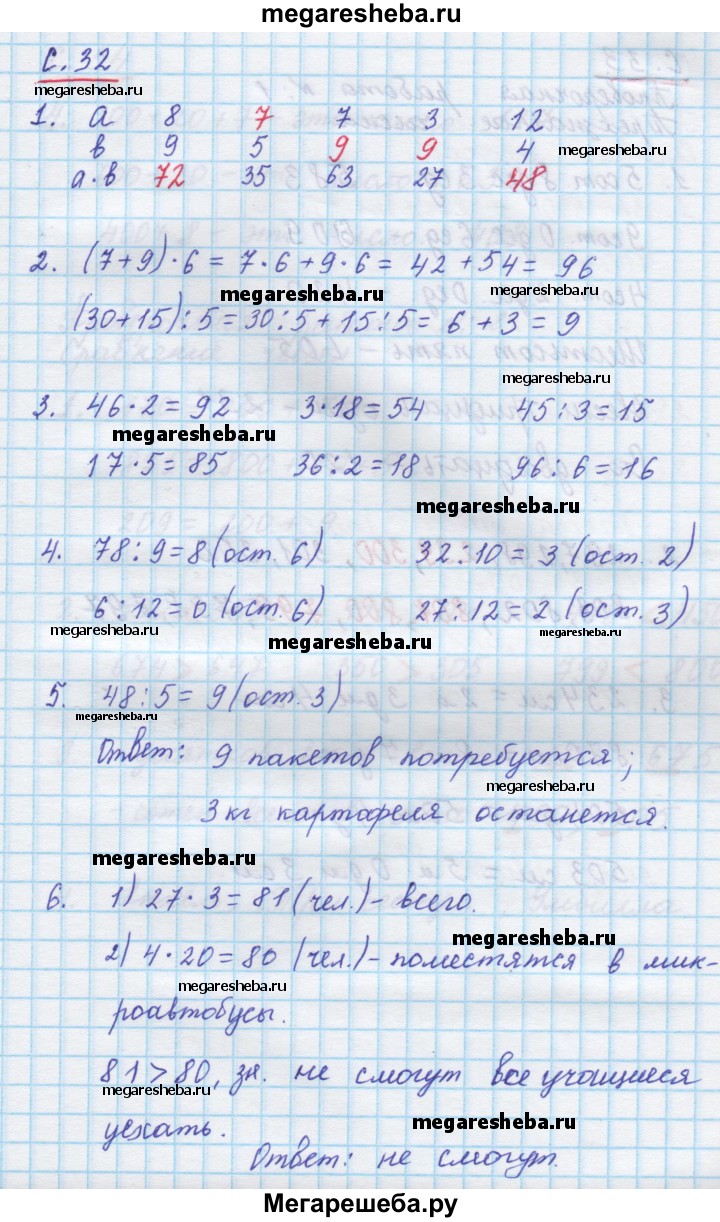 megaresheba.ru
с. 32
megaresheba.ru
1. а 8 7 7 3 12
в 9 5 9 9 4
megaresheba.ru
а·в 72 35 63 27 48
2. (7+9)·6 = 7·6+9·6 = 42+54 = 96
megaresheba.ru megaresheba.ru
(30+15):5 = 30:5+15:5 = 6+3 = 9
megaresheba.ru
3. 46·2 = 92 3·18 = 54 45:3 = 15
megaresheba.ru
17·5 = 85 36:2 = 18 96:6 = 16
megaresheba.ru
4. 78:9 = 8 (ост. 6) 32:10 = 3 (ост. 2)
6:12 = 0 (ост. 6) 27:12 = 2 (ост. 3)
megaresheba.ru megaresheba.ru megaresheba.ru
5. 48:5 = 9 (ост. 3)
megaresheba.ru
Ответ: 9 пакетов потребуется;
megaresheba.ru
3 кг картофеля останется.
megaresheba.ru
6. 1) 27·3 = 81 (чел.) - всего.
megaresheba.ru
2) 4·20 = 80 (чел.) - поместятся в мик-
megaresheba.ru
роавтобусы.
81 > 80, зн. не смогут все учащиеся
megaresheba.ru
уехать.
megaresheba.ru
Ответ: не смогут.
Мегарешеба.ру